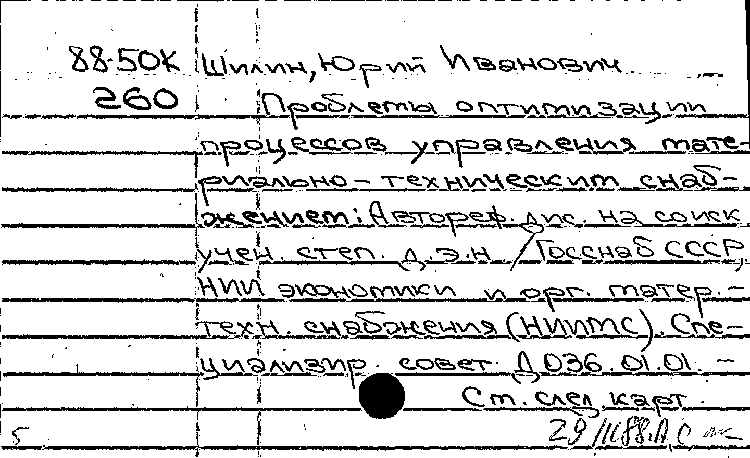 88-50К Шилин, Юрий Иванович
260 Проблемы оптимизации
процессов управления мате-
риально-техническим снаб-
жением: Автореф. дис. на соиск
учен. степ. д.э.н / Госснаб СССР,
НИИ экономики и орг. матер.-
техн. снабжения (НИИМС). Спе-
циализир. совет. Д 036.01.01. –
См. след карт
5